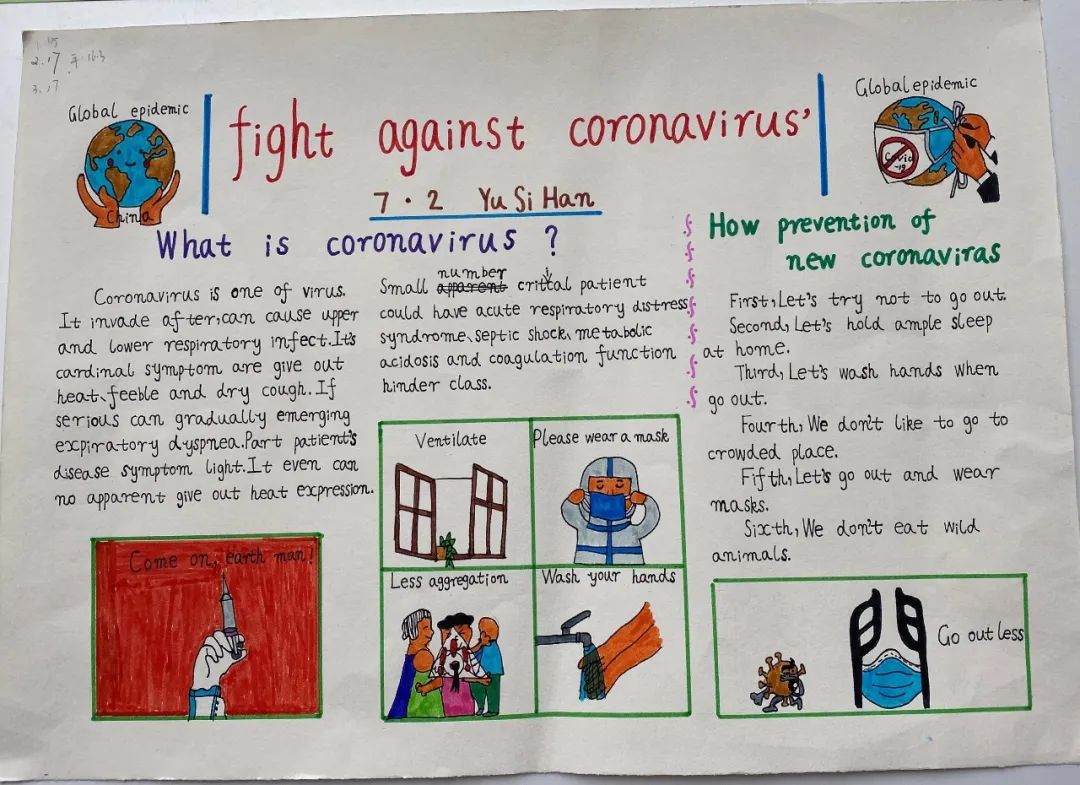 2.17
3.17
Global epidemic
China
fight against coronavirus'
Global epidemic
Covid
-19
7·2 Yu Si Han
What is coronavirus ?
Coronavirus is one of virus.
It invade after,can cause upper
and lower respiratory infect.It's
cardinal symptom are give out
heat、feeble and dry cough.If
serious can gradually emerging
expiratory dyspnea.Part patient's
disease symptom light.It even can
no apparent give out heat expression.
number
Small apparent crittal patient
could have acute respiratory distress
syndrome、septic shock、metabolic
acidosis and coagulation function
hinder class.
How prevention of
new coronaviras
First,Let's try not to go out.
Second,Let's hold ample sleep
at home.
Third,Let's wash hands when
go out.
Fourth,We don't like to go to
crowded place.
Fifth,Let's go out and wear
masks.
Sixth,We don't eat wild
animals.
Come on, earth man!
Ventilate
Please wear a mask
Less aggregation
Wash your hands
Go out less